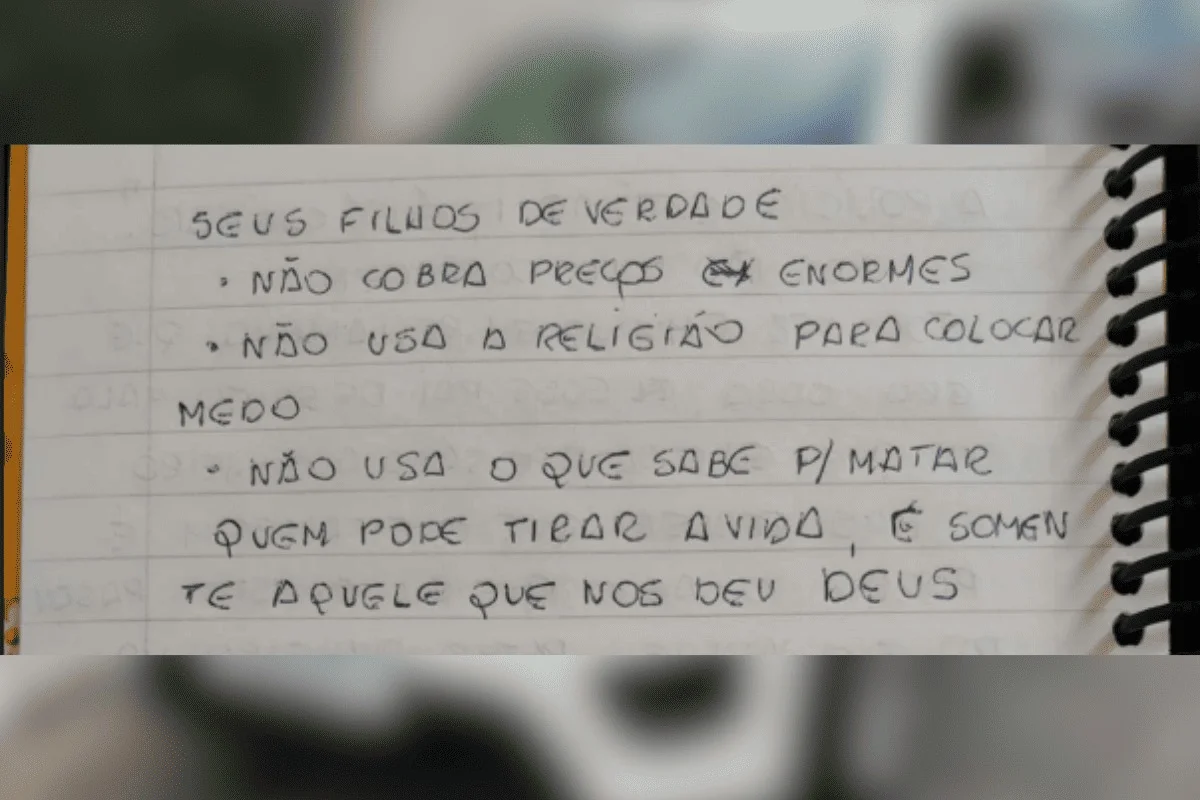 SEUS FILHOS DE VERDADE
• NÃO COBRA PREÇOS ENORMES
• NÃO USA A RELIGIÃO PARA COLOCAR
MEDO
• NÃO USA O QUE SABE P/ MATAR
QUEM PODE TIRAR A VIDA, É SOMEN
TE AQUELE QUE NOS DEU DEUS